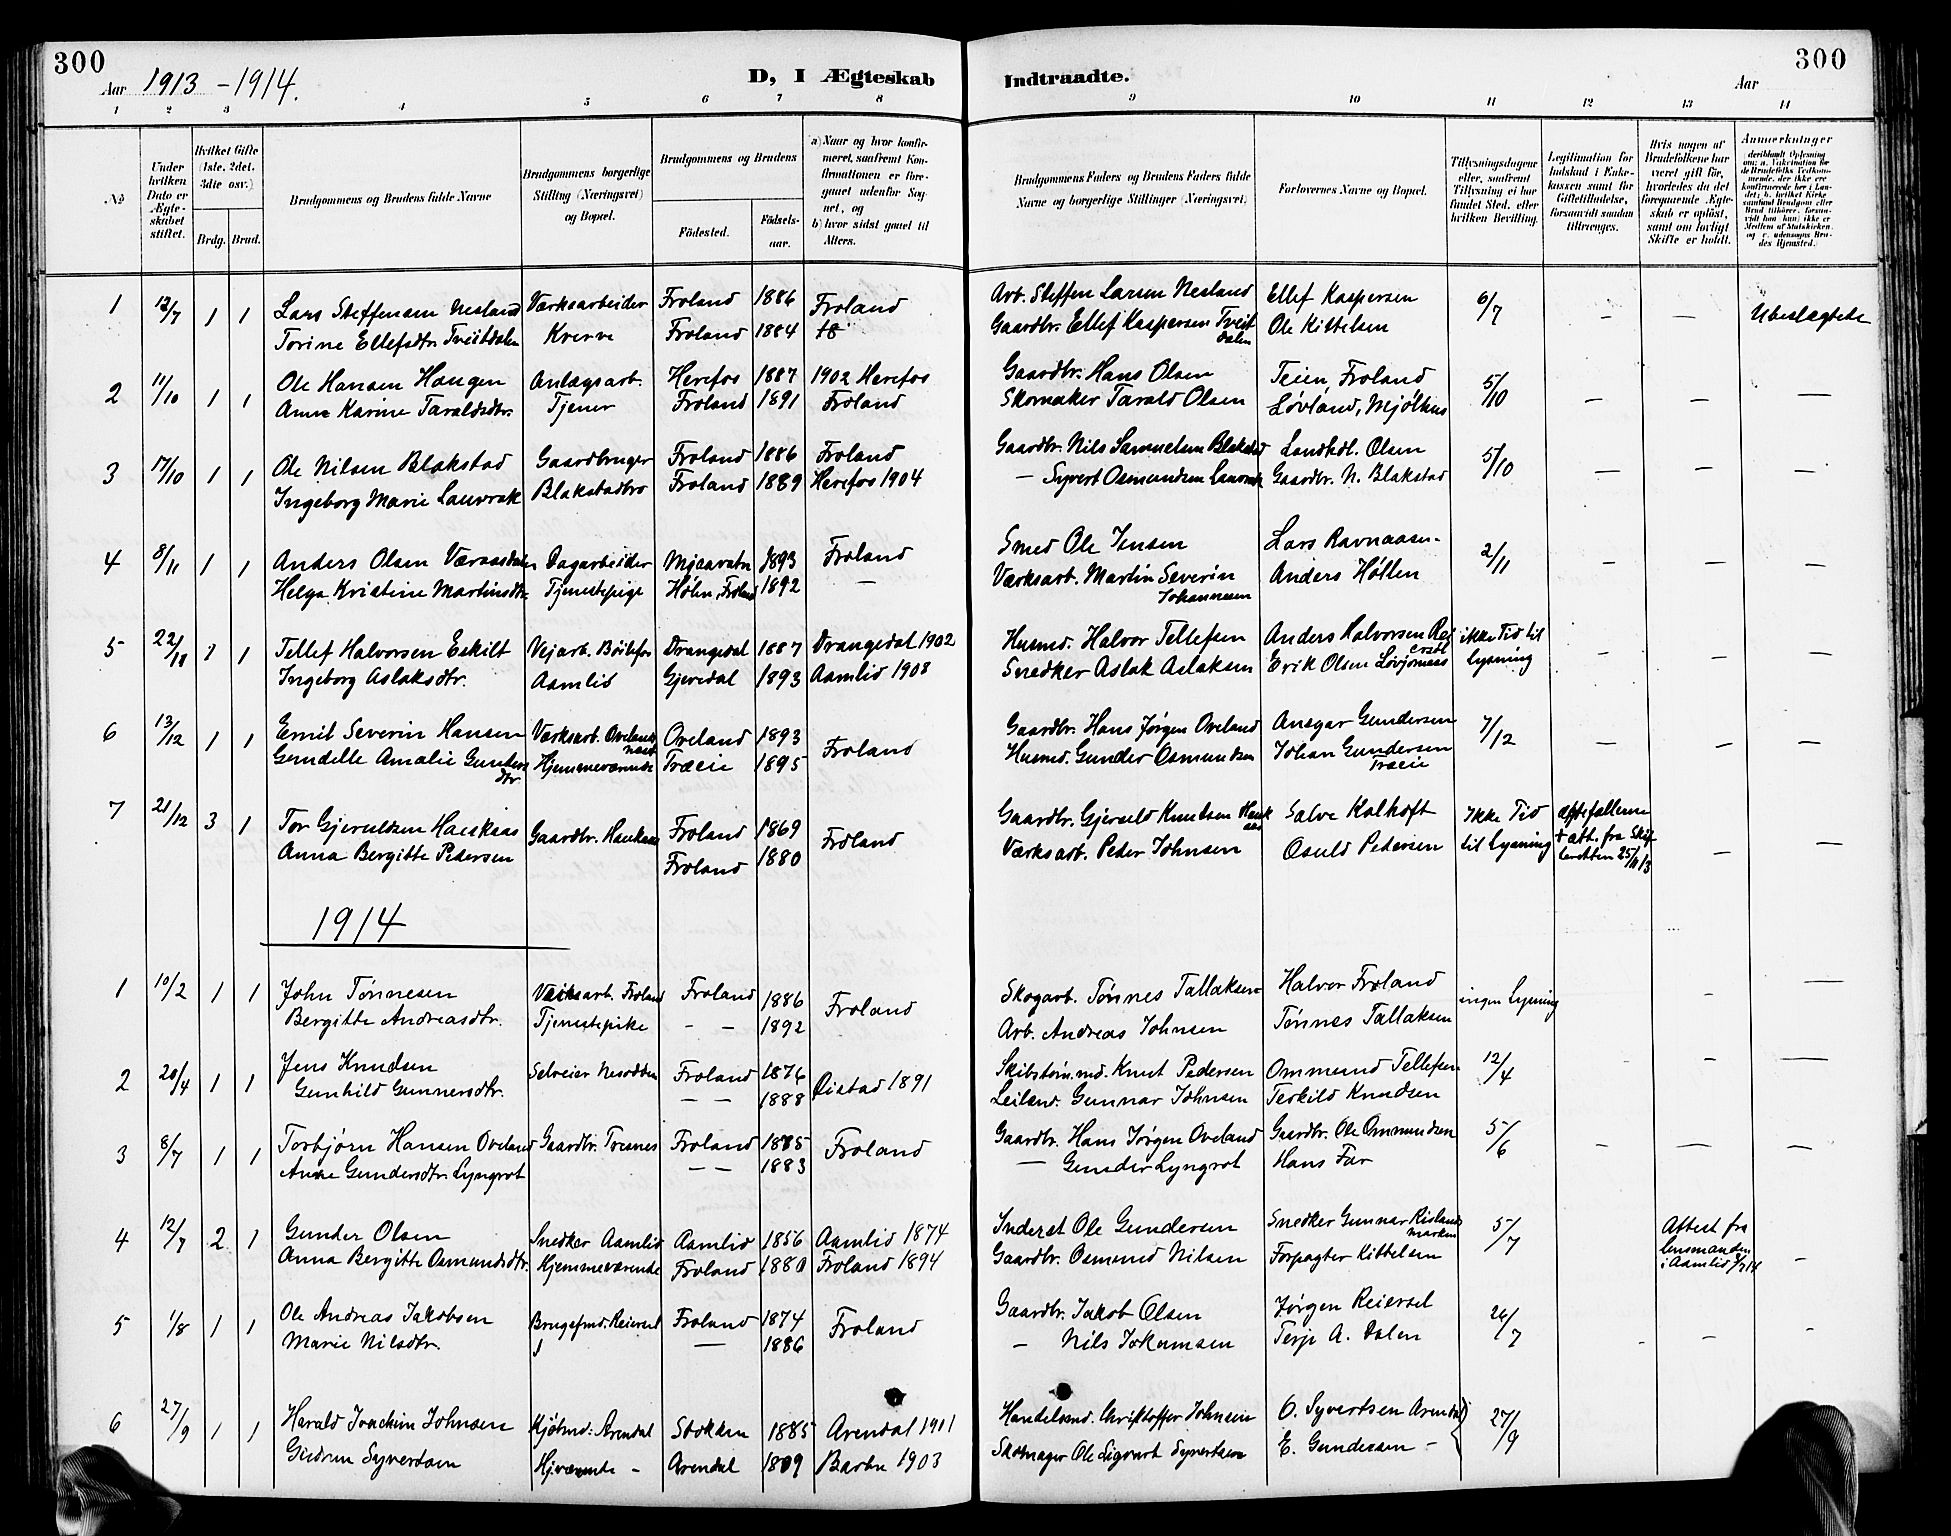 300
300
Aar 1913 - 1914.
D, I Ægteskab
Indtraadte.
Aar
1 2 3 4 5 6 7 8 9 10 11 12 13 14
No
Under hvilken Dato er Ægteskabet stiftet.
Hvilket Gifte (1ste, 2det, 3die osv.)
Brdg. Brud.
Brudgommens og Brudens fulde Navne
Brudgommens borgerlige Stilling (Næringsvei) og Bopæl.
Brudgommens og Brudens
Fødested.
Fødselsaar.
a) Naar og hvor konfirmeret, saafremt Konfirmationen er foregaaet udenfor Sognet, og
b) hvor sidst gaaet til Alters.
Brudgommens Faders og Brudens Faders fulde Navne og borgerlige Stillinger (Næringsvei)
Forlovernes Navne og Bopæl.
Tillysningsdagene eller, saafremt Tillysning ei har fundet Sted, efter hvilken Bevilling.
Legitimation for Indskud i Enkekassen samt for Giftetilladelse, forsaavidt saadan tiltrænges.
Hvis nogen af Brudefolkene har været gift før, hvorledes da det foregaaende Ægteskab er opløst, samt om lovligt Skifte er holdt.
Anmerkninger
1 12/7 1 1 Lars Steffensen Nesland Værksarbeider Froland 1886 Froland Arb. Steffen Larsen Nesland Ellef Kaspersen 6/7 – – Ubeslægtede
Torine Ellefsdtr. Tveitdalen Froland 1884 Gaardbr. Ellef Kaspersen Tveitdalen Ole Kittelsen
2 11/10 1 1 Ole Hansen Haugen Anlægsarb. Herefos 1887 1902 Herefos Gaardbr. Hans Olsen Teien, Froland 5/10 – – –
Anne Karine Taraldsdtr. Tjener Froland 1891 Froland Skomaker Tarald Olsen Løvland, Mjølhus
3 17/10 1 1 Ole Nilsen Blakstad Gaardbruger Froland 1886 Froland Gaardbr. Nils Samuelsen Blakstad Landhdl. Olsen 5/10 – – –
Ingeborg Marie Lauvrak Blakstadbro Froland 1889 Herefos 1904 – Syvert Osmundsen Lauvrak Gaardbr. N. Blakstad
4 8/11 1 1 Anders Olsen Dagarbeider 1893 Froland Smed Ole Jensen Lars Ravnaasen 2/11 – – –
Helga Kristine Martinsdtr. Tjenestepige Froland 1892 – Værksarb. Martin Severin Johannesen Anders Holten
5 22/11 1 1 Tellef Halvorsen Eskilt Vejarb. Böilefos Drangedal 1887 Drangedal 1902 Husmd. Halvor Tellefsen Anders Halvorsen ikke Tid til – – –
Ingeborg Aslaksdtr. Aamlid Gjøvdal 1893 Aamlid 1908 Snedker Aslak Aslaksen Erik Olsen lysning
6 13/12 1 1 Emil Severin Hansen Værksarb. Oveland 1893 Froland Gaardbr. Hans Jørgen Oveland Ansgar Gundersen 7/12 – – –
Gundelle Amalie Gundersdtr. Hjemmeværende Træeie 1895 Husmd. Gunder Osmundsen Johan Gundersen Træeie
7 21/12 3 1 Tor Gjeruldsen Haukaas Gaardbr. Haukaas Froland 1869 Froland Gaardbr. Gjeruld Knudsen Haukaas Salve Kalhoft Ikke Tid – –
Anna Bergitte Pedersen Froland 1880 Værksarb. Peder Johnsen Osuld Pedersen til lysning att. fra
1914
1 10/2 1 1 John Tønnesen Værksarb. Froland Froland 1886 Froland Skogarb. Tønnes Tallaksen Halvor Froland ingen lysning – –
Bergitte Andreasdtr. Tjenestepike – – 1892 Arb. Andreas Johnsen Tønnes Tallaksen
2 20/4 1 1 Jens Knudsen Selveier Froland 1876 Øistad 1891 Knut Pedersen Ommund Tellefsen 12/4 – – –
Gunhild Gunnersdtr. – – 1888 Leilænd. Gunnar Johnsen Terkild Knudsen
3 8/7 1 1 Torbjørn Hansen Oveland Gaardbr. Froland 1885 Froland Gaardbr. Hans Jørgen Oveland Gaardbr. Ole Ommundsen 5/6 – – –
Anne Gundersdtr. Lyngrot – – 1883 – Gunder Lyngrot Hans Far
4 12/7 2 1 Gunder Olsen Snedker Aamlid Aamlid 1856 Aamlid 1874 Inderst Ole Gundersen Snedker Gunnar 5/7 Attest fra lensmanden i Aamlid –
Anna Bergitte Osmundsdtr. Hjemmeværende Froland 1880 Froland 1894 Gaardbr. Osmund Nilsen Forpagter Kittelsen
5 1/8 1 1 Ole Andreas Jakobsen Brugsfmd. Reiersøl Froland 1874 Froland Gaardbr. Jakob Olsen Jørgen Reiersøl 26/7 – – –
Marie Nilsdtr. — 1886 – Nils Jokumsen Terje A. Dalen
6 27/9 1 1 Harald Joachim Johnsen Kjøbmd. Arendal Stokken 1885 Arendal 1901 Handelsmd. Christoffer Johnsen O. Syvertsen Arendal 27/9
Gudrun Syvertsen Hjværende – Arendal 1889 Barbu 1903 Skomager Ole Sigvart Syvertsen E. Gundersen –